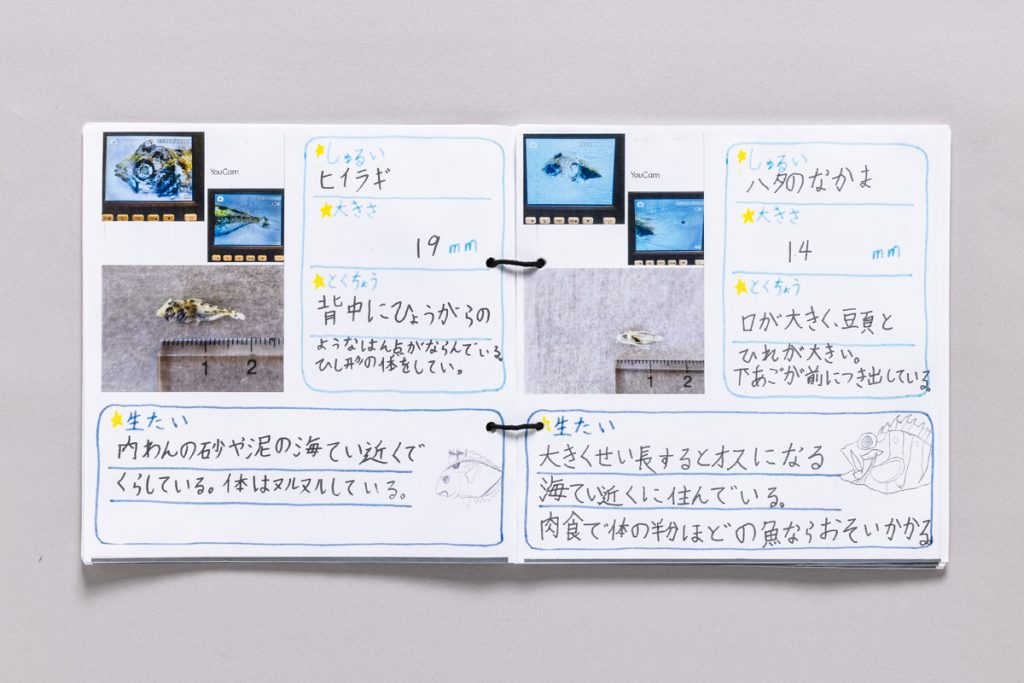 YouCam
★しゅるい
ヒイラギ
★大きさ
19 mm
★とくちょう
背中にひょうがらの
ようなはん点がならんでいる。
ひし形の体をしてい。
1 2
★生たい
内わんの砂や泥の海てい近くで
くらしている。体はヌルヌルしている。
YouCam
★しゅるい
ハタのなかま
★大きさ
14 mm
★とくちょう
口が大きく、頭と
ひれが大きい。
下あごが前につき出している。
1 2
★生たい
大きくせい長するとオスになる
海てい近くに住んでいる。
肉食で体の半分ほどの魚ならおそいかかる。